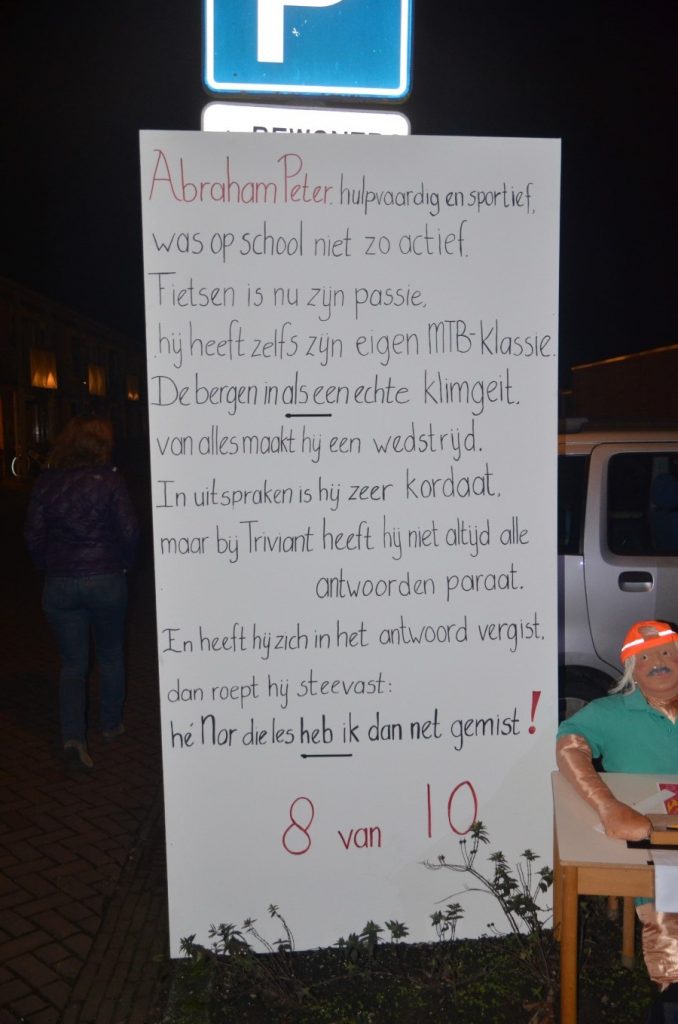 P
BEWONERS
Abraham Peter. hulpvaardig en sportief,
was op school niet zo actief.
Fietsen is nu zijn passie,
hij heeft zelfs zijn eigen MTB-Klassie.
De bergen in als een echte klimgeit.
van alles maakt hij een wedstrijd.
In uitspraken is hij zeer kordaat,
maar bij Triviant heeft hij niet altijd alle
antwoorden paraat.
En heeft hij zich in het antwoord vergist,
dan roept hij steevast:
hé Nor die les heb ik dan net gemist!
8 van 10